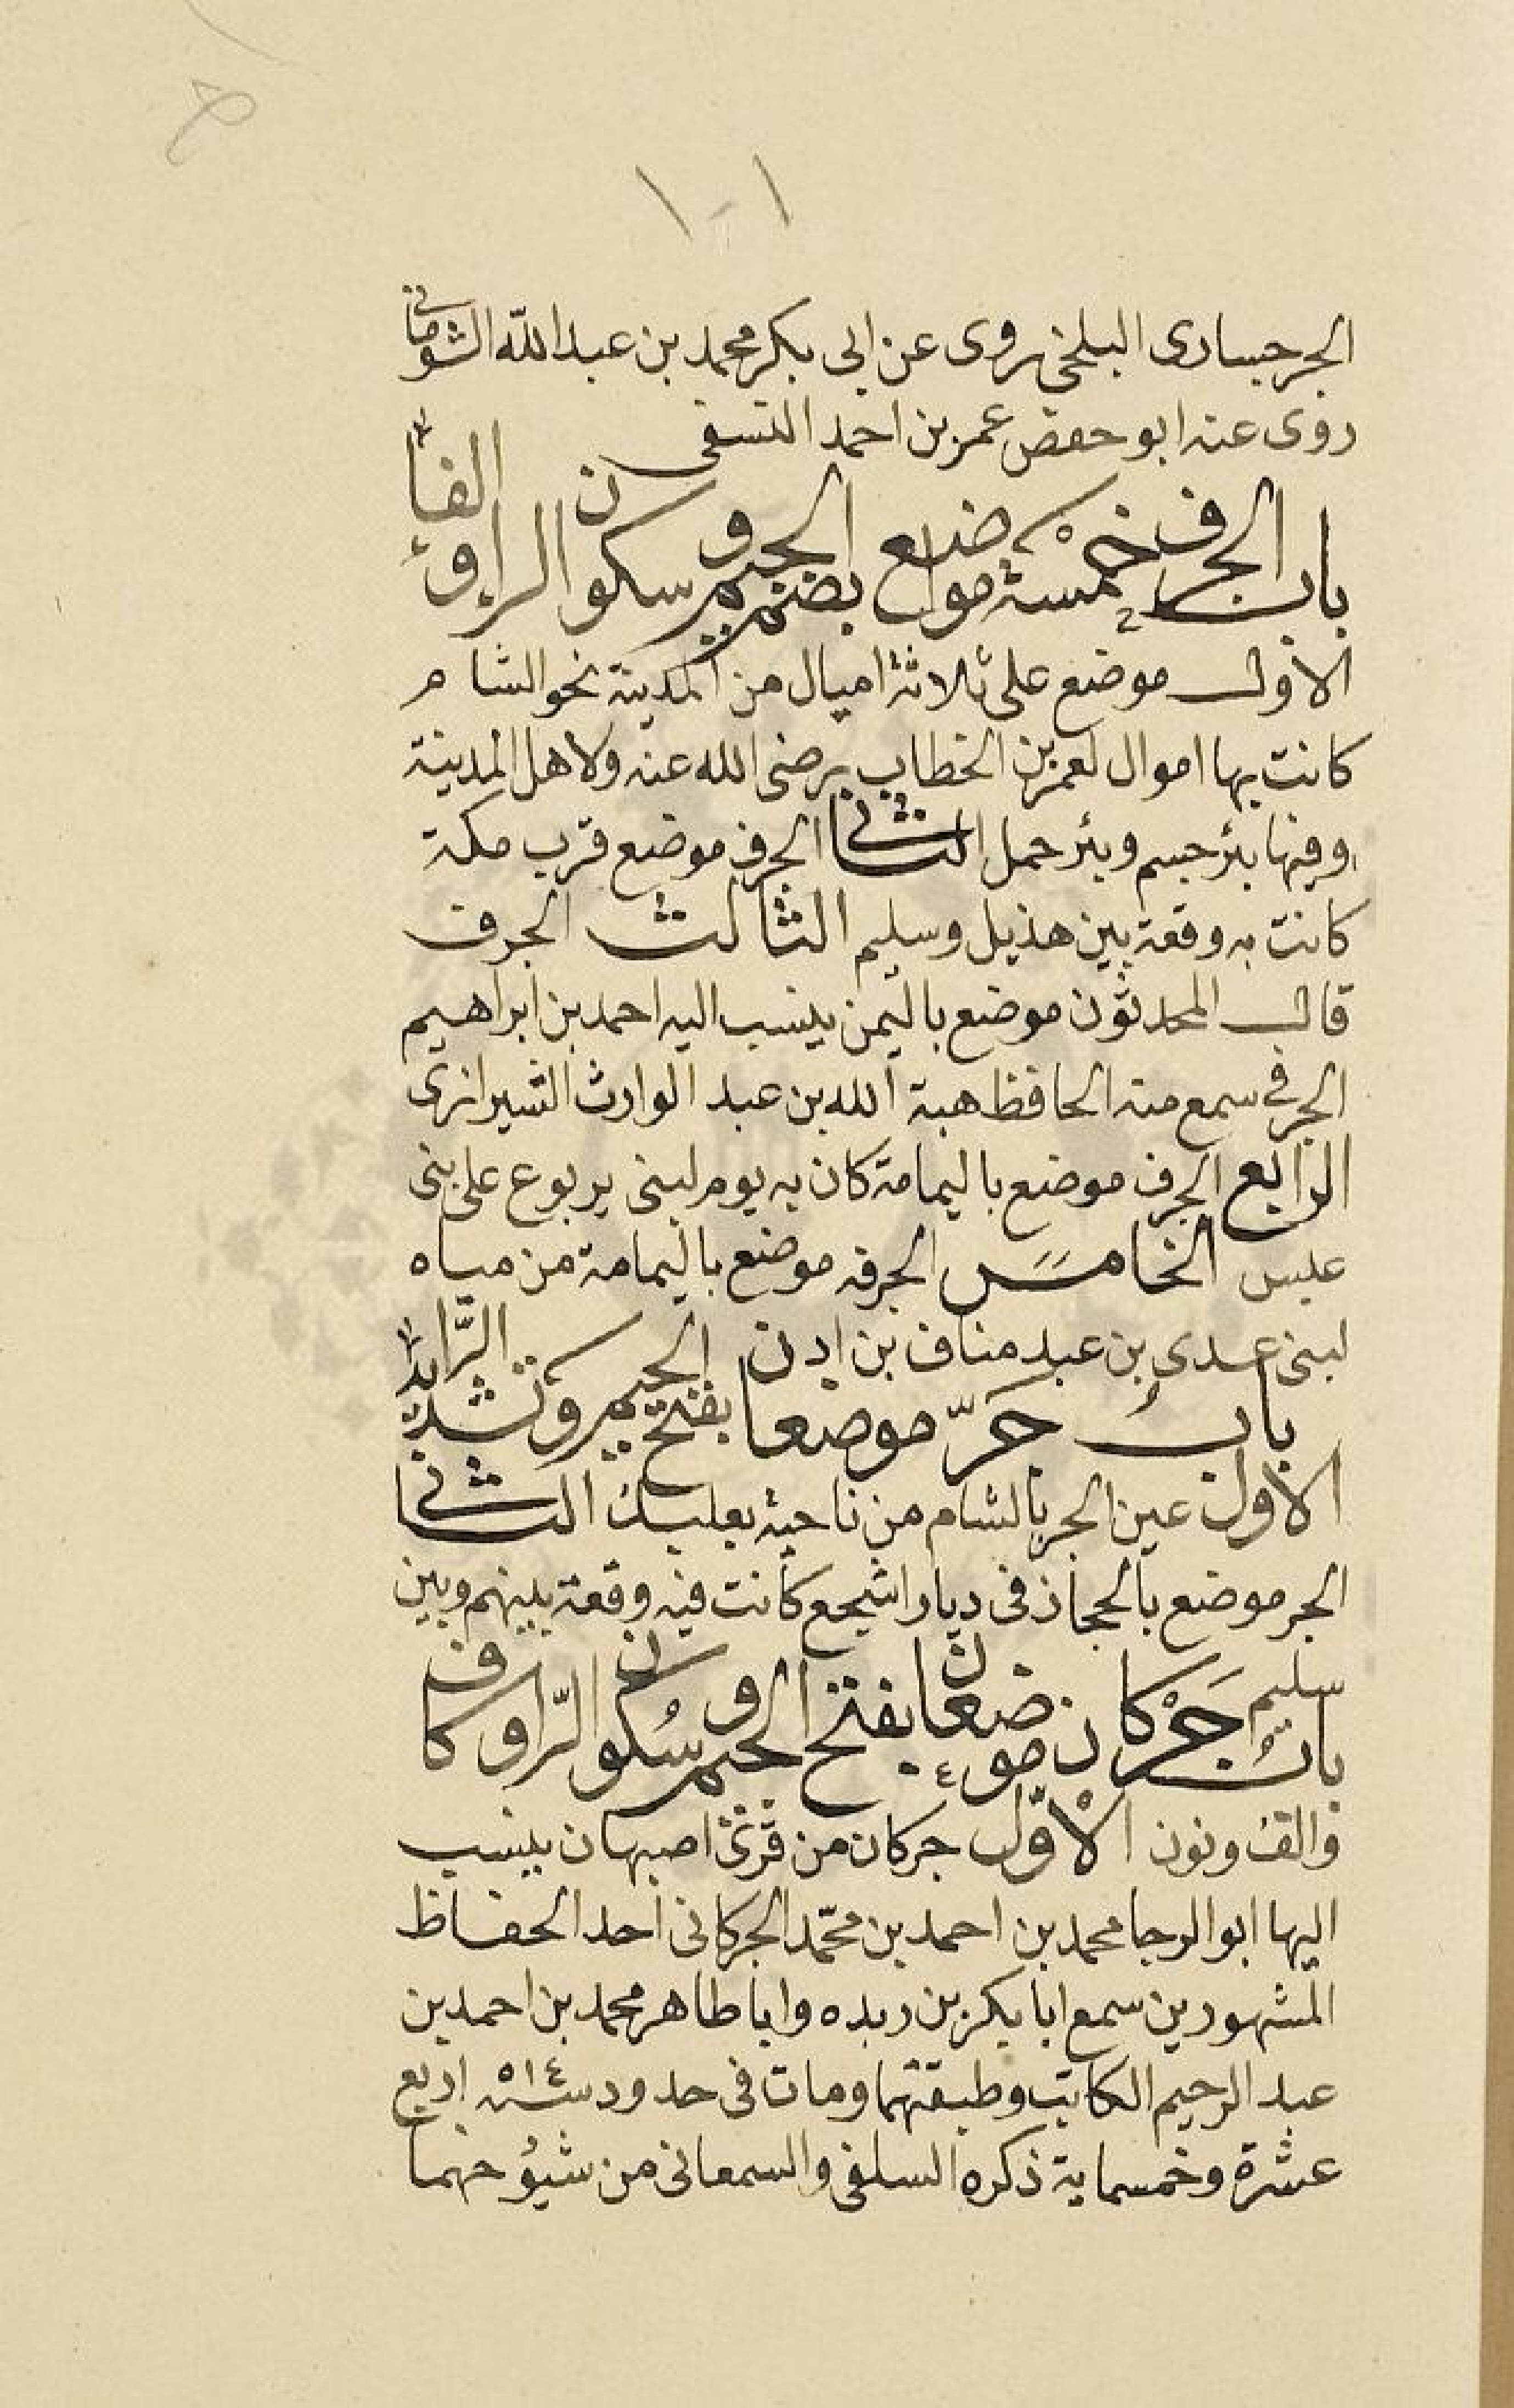 ١٠١
الجرجسارى البلخى روى عن ابى بكر محمد بن عبد الله الشومانى
روى عنه ابو حفص عمر بن احمد النسفى
باب الجرف خمسة مواضع بضم الجيم وسكون الراء والفاء
الاول موضع على ثلاثة اميال من المدينة نحو الشام
كانت بها اموال لعمر بن الخطاب رضى الله عنه ولاهل المدينة
وفيها بئر جسم وبئر حمل الثانى الجرف موضع قرب مكة
كانت به وقعة بين هذيل وسليم الثالث الجرف
قال المحدثون موضع باليمن ينسب اليه احمد بن ابراهيم
الجرفى سمع منه الحافظ هبة الله بن عبد الوارث الشيرازى
الرابع الجرف موضع باليمامة كان به يوم لبنى يربوع على بنى
عبس الخامس الجرفه موضع باليمامة من مياه
لبنى عدى بن عبد مناف بن ادن
باب جَرّ موضعا بفتح الجيم وتشديد الرَّاء
الاول عين الجر بالشام من ناحية بعلبك الثانى
الجر موضع بالحجاز فى ديار اشجع كانت فيه وقعة بينهم وبين
سليم
باب جَرْكان موضعان بفتح الجيم وسُكون الرّا وكاف
والف ونون الاوّل جركان من قرى اصبهان ينسب
اليها ابو الرجا محمد بن احمد بن محمّد الجركانى احد الحفاظ
المشهورين سمع ابا بكر بن ريده وابا طاهر محمد بن احمد بن
عبد الرحيم الكاتب وطبقتهما ومات فى حدود سنه ٥١٤ اربع
عشرة وخمسماية ذكره السلفى والسمعانى من شيوخهما